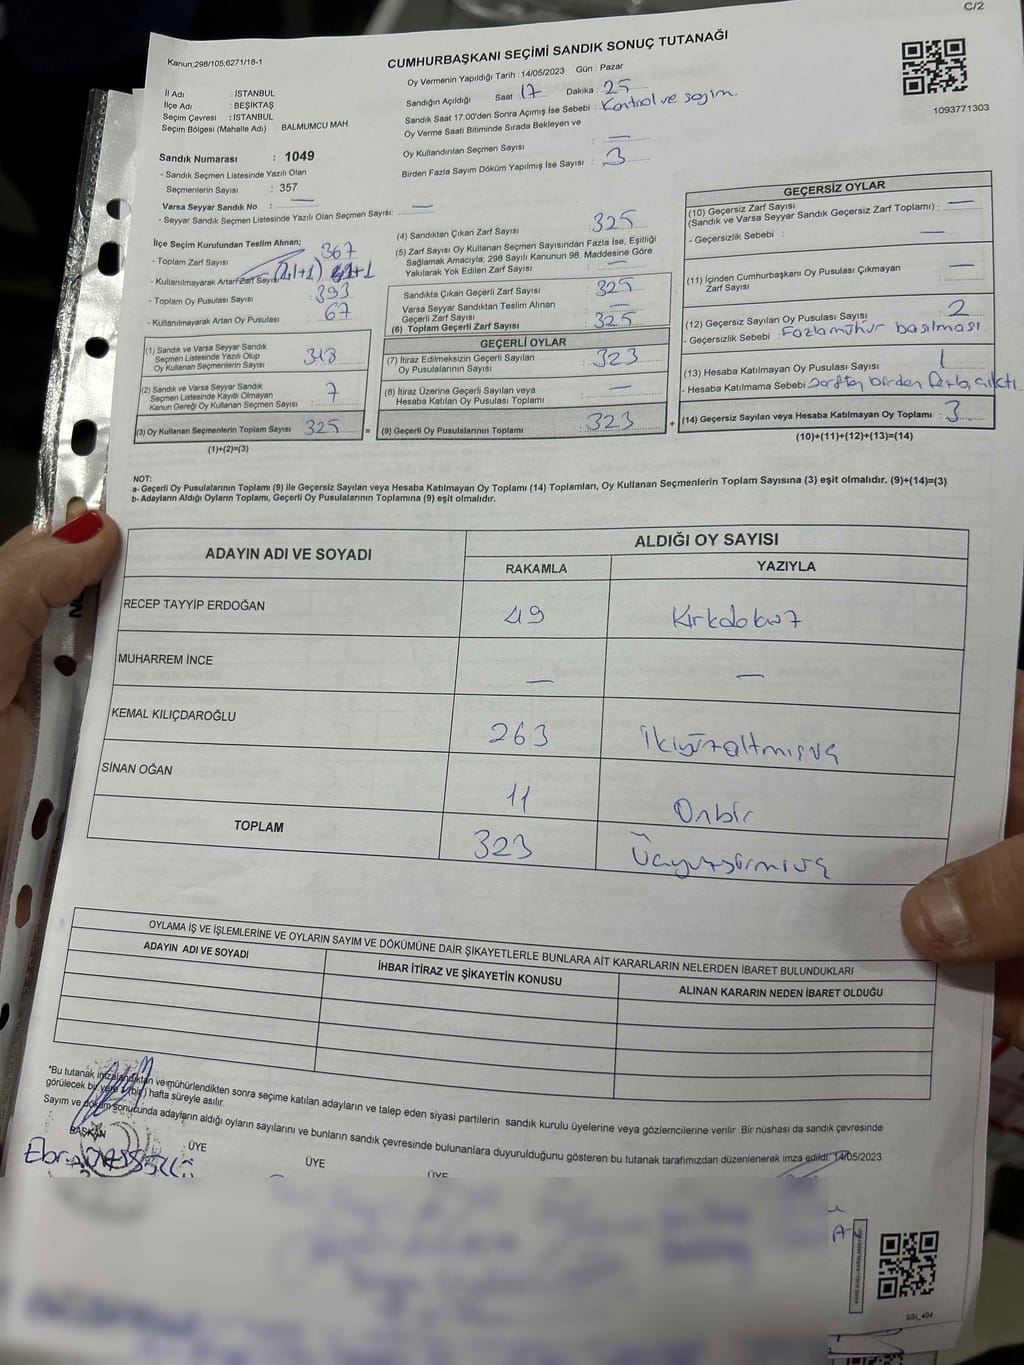 C/2
Kanun:298/105,6271/18-1
CUMHURBAŞKANI SEÇİMİ SANDIK SONUÇ TUTANAĞI
Oy Vermenin Yapıldığı Tarih : 14/05/2023 Gün : Pazar
1093771303
İl Adı : İSTANBUL
İlçe Adı : BEŞİKTAŞ
Seçim Çevresi : İSTANBUL
Seçim Bölgesi (Mahalle Adı) : BALMUMCU MAH.
Sandığın Açıldığı Saat : 17 Dakika : 25
Sandık Saat 17.00'den Sonra Açımış İse Sebebi : Kontrol ve sayım.
Oy Verme Saati Bitiminde Sırada Bekleyen ve
Oy Kullandırılan Seçmen Sayısı : —
Birden Fazla Sayım Döküm Yapılmış İse Sayısı : 3
Sandık Numarası : 1049
- Sandık Seçmen Listesinde Yazılı Olan
Seçmenlerin Sayısı : 357
Varsa Seyyar Sandık No : —
- Seyyar Sandık Seçmen Listesinde Yazılı Olan Seçmen Sayısı: —
İlçe Seçim Kurulundan Teslim Alınan;
- Toplam Zarf Sayısı : 367
- Kullanılmayarak Artan Zarf Sayısı (41+1)
- Toplam Oy Pusulası Sayısı : 393
- Kullanılmayarak Artan Oy Pusulası : 67
(1) Sandık ve Varsa Seyyar Sandık
Seçmen Listesinde Yazılı Olup
Oy Kullanan Seçmenlerin Sayısı : 318
(2) Sandık ve Varsa Seyyar Sandık
Seçmen Listesinde Kayıtlı Olmayan
Kanun Gereği Oy Kullanan Seçmen Sayısı : 7
(3) Oy Kullanan Seçmenlerin Toplam Sayısı : 325 =
(1)+(2)=(3)
(4) Sandıktan Çıkan Zarf Sayısı : 325
(5) Zarf Sayısı Oy Kullanan Seçmen Sayısından Fazla İse, Eşitliği
Sağlamak Amacıyla; 298 Sayılı Kanunun 98. Maddesine Göre
Yakılarak Yok Edilen Zarf Sayısı : —
Sandıkta Çıkan Geçerli Zarf Sayısı : 325
Varsa Seyyar Sandıktan Teslim Alınan
Geçerli Zarf Sayısı : —
(6) Toplam Geçerli Zarf Sayısı : 325
GEÇERLİ OYLAR
(7) İtiraz Edilmeksizin Geçerli Sayılan
Oy Pusulalarının Sayısı : 323
(8) İtiraz Üzerine Geçerli Sayılan veya
Hesaba Katılan Oy Pusulası Toplamı : —
(9) Geçerli Oy Pusulalarının Toplamı : 323 +
GEÇERSİZ OYLAR
(10) Geçersiz Zarf Sayısı
(Sandık ve Varsa Seyyar Sandık Geçersiz Zarf Toplamı) : —
- Geçersizlik Sebebi : —
(11) İçinden Cumhurbaşkanı Oy Pusulası Çıkmayan
Zarf Sayısı : —
(12) Geçersiz Sayılan Oy Pusulası Sayısı : 2
- Geçersizlik Sebebi : Fazla mühür basılması
(13) Hesaba Katılmayan Oy Pusulası Sayısı : 1
- Hesaba Katılmama Sebebi : zarftan birden fazla çıktı.
(14) Geçersiz Sayılan veya Hesaba Katılmayan Oy Toplamı : 3
(10)+(11)+(12)+(13)=(14)
NOT:
a- Geçerli Oy Pusulalarının Toplamı (9) ile Geçersiz Sayılan veya Hesaba Katılmayan Oy Toplamı (14) Toplamları, Oy Kullanan Seçmenlerin Toplam Sayısına (3) eşit olmalıdır. (9)+(14)=(3)
b- Adayların Aldığı Oyların Toplamı, Geçerli Oy Pusulalarının Toplamına (9) eşit olmalıdır.
ADAYIN ADI VE SOYADI
ALDIĞI OY SAYISI
RAKAMLA YAZIYLA
RECEP TAYYİP ERDOĞAN 49 Kırkdokuz
MUHARREM İNCE — —
KEMAL KILIÇDAROĞLU 263 İkiyüzaltmışüç
SİNAN OĞAN 11 Onbir
TOPLAM 323 Üçyüzyirmiüç
OYLAMA İŞ VE İŞLEMLERİNE VE OYLARIN SAYIM VE DÖKÜMÜNE DAİR ŞİKAYETLERLE BUNLARA AİT KARARLARIN NELERDEN İBARET BULUNDUKLARI
ADAYIN ADI VE SOYADI İHBAR İTİRAZ VE ŞİKAYETİN KONUSU ALINAN KARARIN NEDEN İBARET OLDUĞU
"Bu tutanak imzalandıktan ve mühürlendikten sonra seçime katılan adayların ve talep eden siyasi partilerin sandık kurulu üyelerine veya gözlemcilerine verilir. Bir nüshası da sandık çevresinde
görülecek bir yere (bir) hafta süreyle asılır.
Sayım ve döküm sonucunda adayların aldığı oyların sayılarını ve bunların sandık çevresinde bulunanlara duyurulduğunu gösteren bu tutanak tarafımızdan düzenlenerek imza edildi. 14/05/2023
BAŞKAN ÜYE ÜYE ÜYE
Ebra
SSI_404